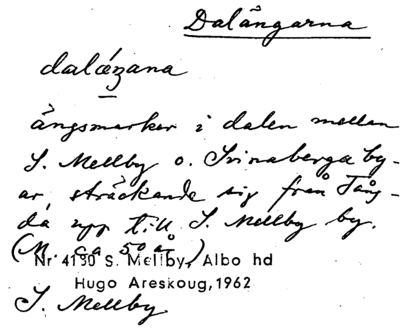 Dalängarna
dalæ̀ʒana
ängsmarker i dalen mellan
S. Mellby o. Svinaberga by-
ar, sträckande sig från Tång-
då upp till S. Mellby by.
(M. ca 50 år.)
Nr 4190 S. Mellby, Albo hd
Hugo Areskoug, 1962
S. Mellby